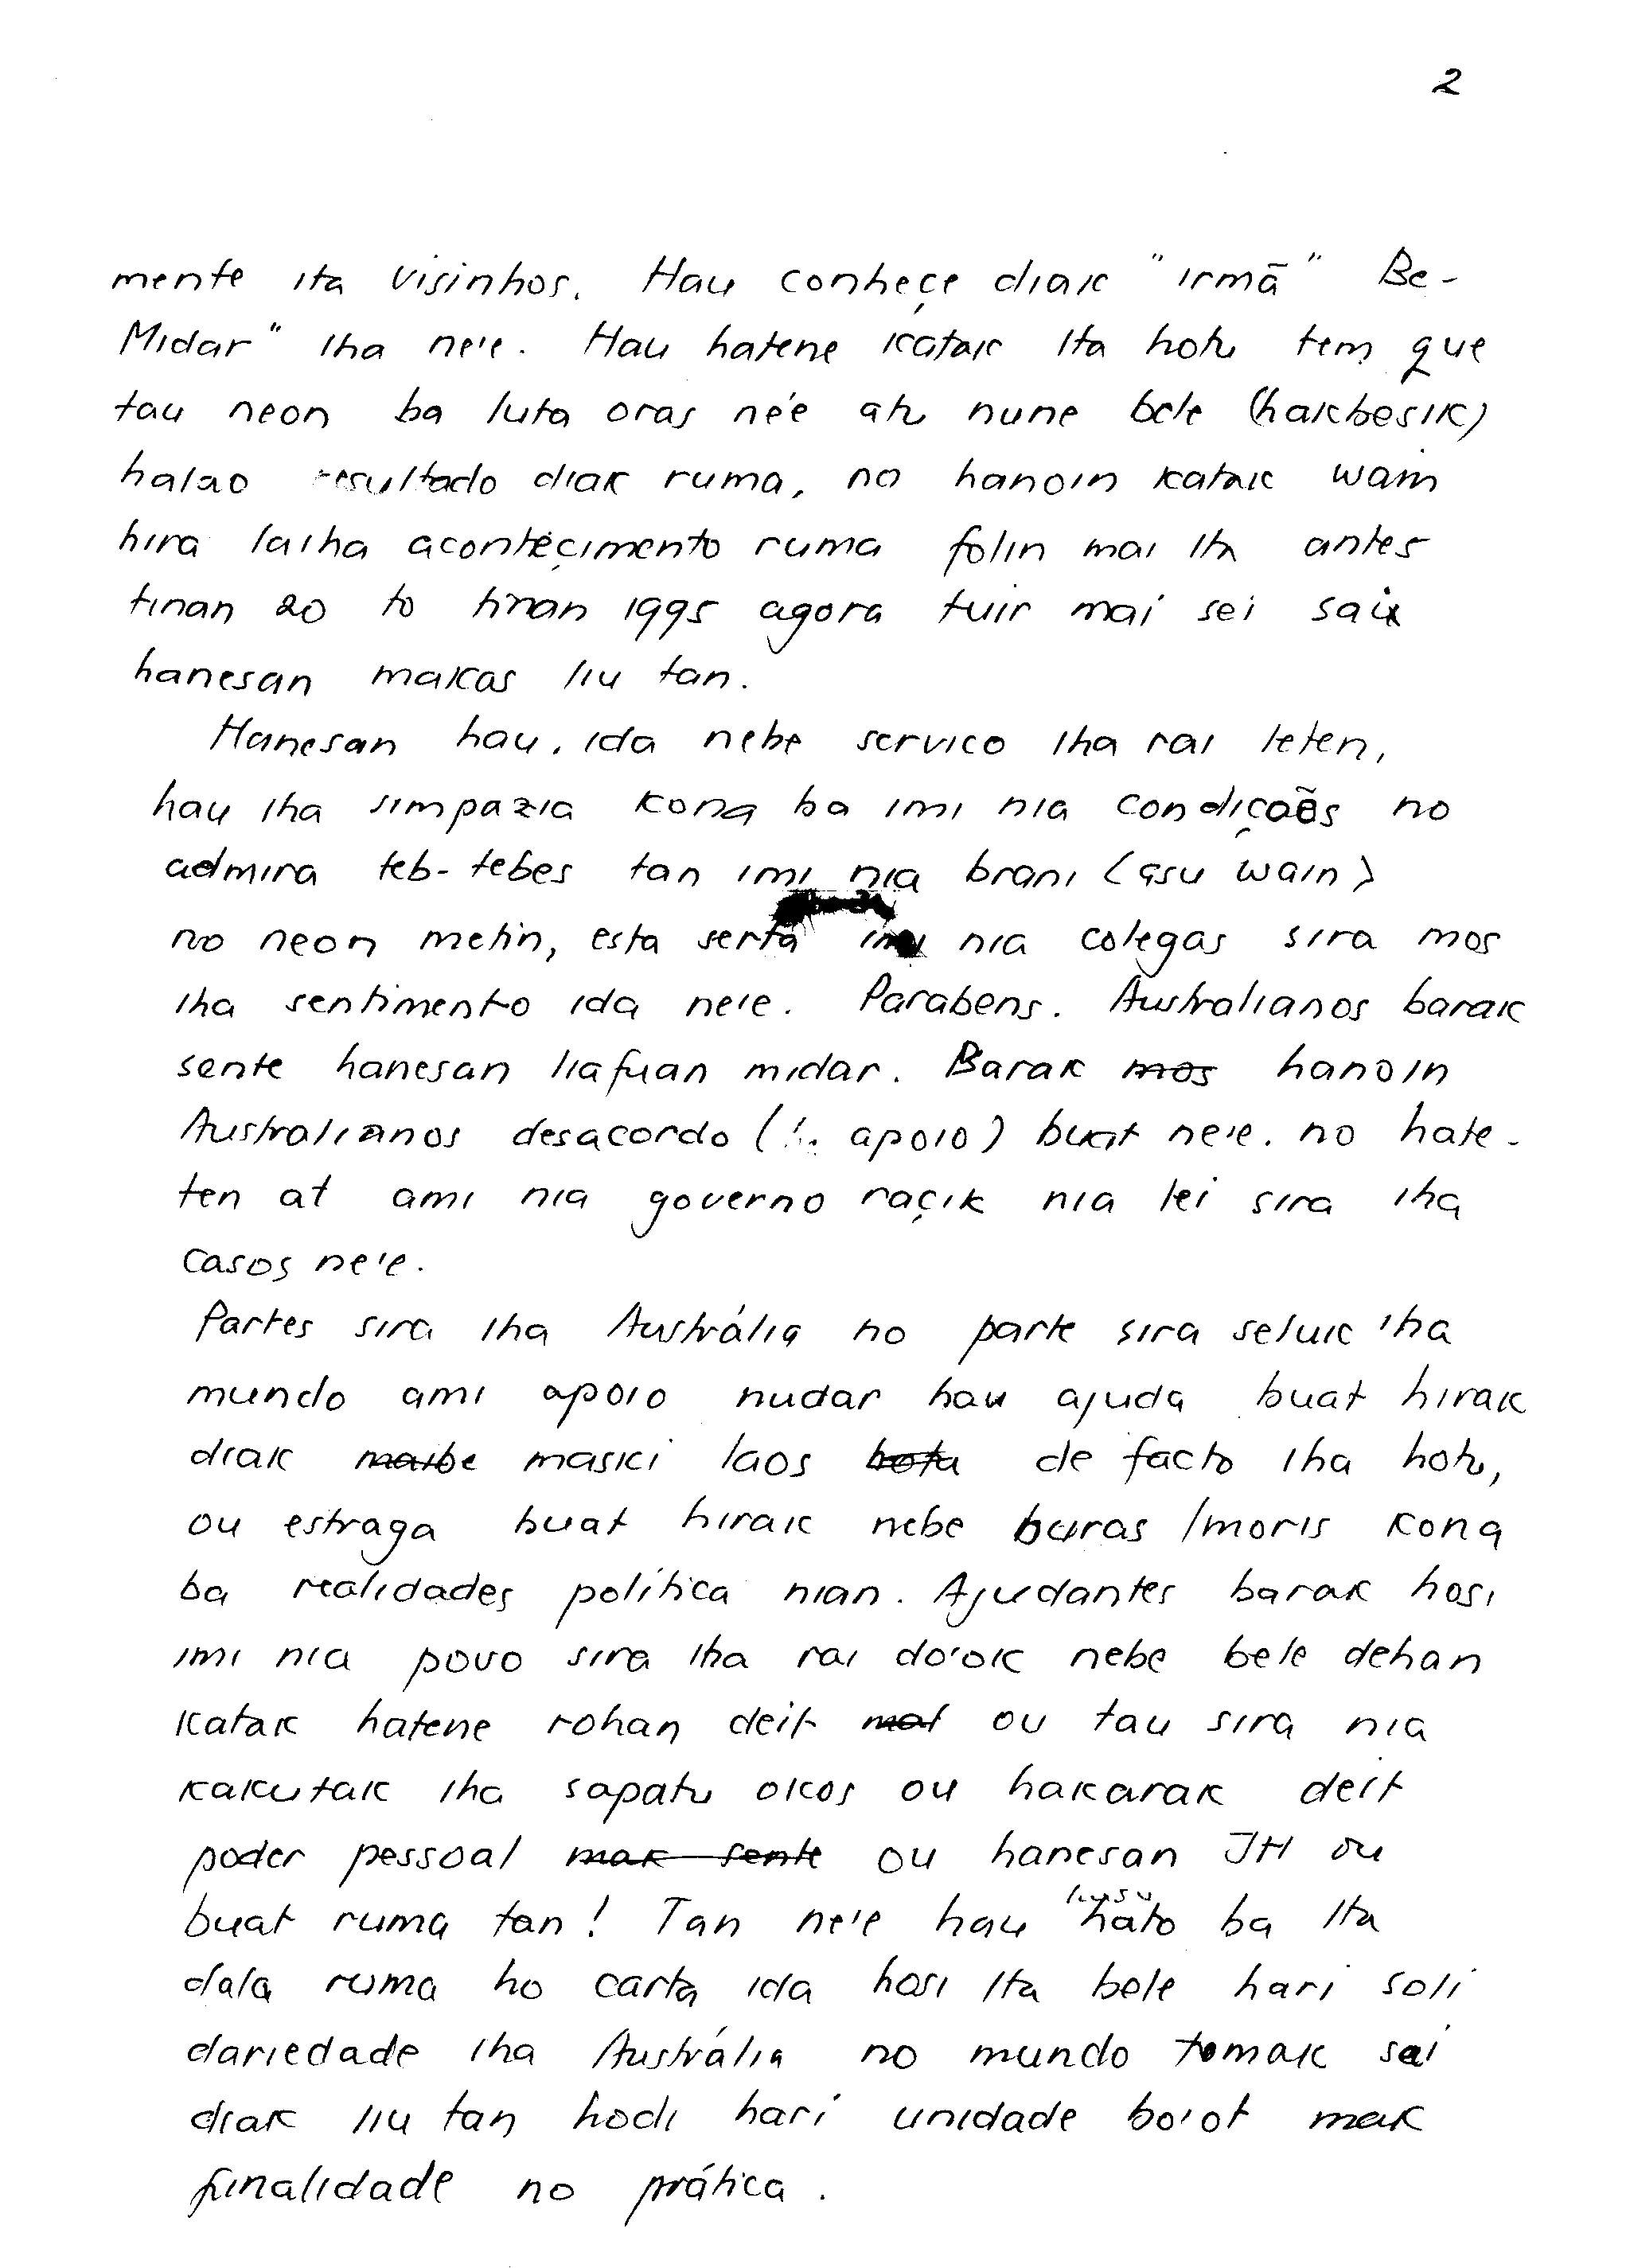 2
mente ita visinhos. Hau conheçe diak "irmã" Be-
Midar" iha ne'e. Hau hatene katak Ita hotu tem que
tau neon ba luta oras né'e atu nune bele (hakbesik)
halao resultado diak ruma, no hanoin katak wain
hira laiha aconteçimento ruma folin mai Ita antes
tinan 20 to tinan 1995 agora tuir mai sei sai
hanesan makas liu tan.
Hanesan hau, ida nebe servico iha rai leten,
hau iha simpazia kona ba imi nia condiçaõs no
admira teb-tebes tan imi nia brani (asu wain)
no neon metin, esta serta imi nia colegas sira mos
iha sentimento ida ne'e. Parabens. Australianos barak
sente hanesan liafuan midar. Barak mos hanoin
Australianos desacordo (la apoio) buat ne'e. no hate-
ten at ami nia governo raçik nia lei sira iha
casos ne'e.
Partes sira iha Austrália no parte sira seluk iha
mundo ami apoio nudar hau ajuda buat hirak
diak maibe maski laos hotu de facto iha hotu,
ou estraga buat hirak nebe buras/moris kona
ba realidades política nian. Ajudantes barak hosi
imi nia povo sira iha rai do'ok nebe bele dehan
katak hatene rohan deit mat ou tau sira nia
kakutak iha sapatu okos ou hakarak deit
poder pessoal mak sente ou hanesan JH ou
buat ruma tan! Tan ne'e hau husu hato ba Ita
dala ruma ho carta ida hosi Ita bele hari soli
dariedade iha Austrália no mundo tomak sai
diak liu tan hodi hari unidade bo'ot mak
finalidade no prática.